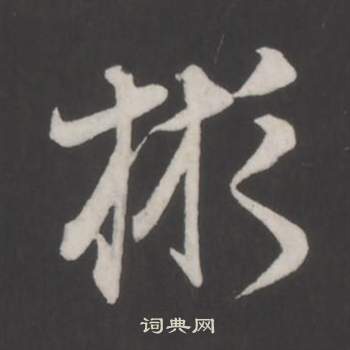 彬
词典网